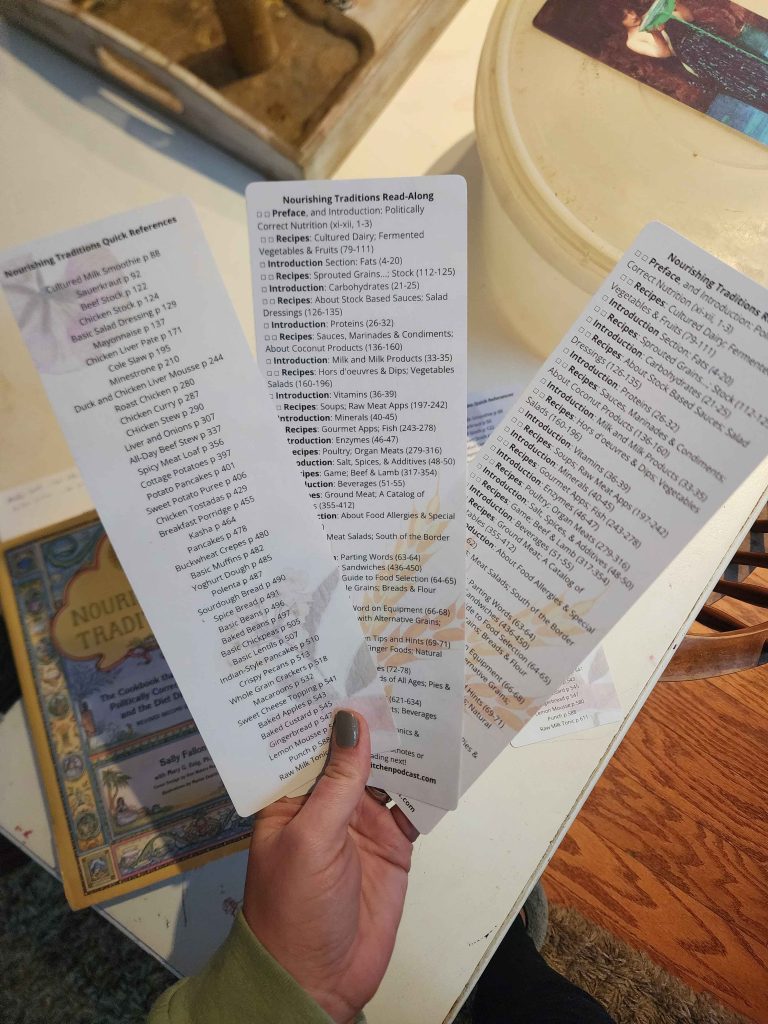 Nourishing Traditions Quick References
Cultured Milk Smoothie p 88
Sauerkraut p 92
Beef Stock p 122
Chicken Stock p 124
Basic Salad Dressing p 129
Mayonnaise p 137
Chicken Liver Pate p 171
Cole Slaw p 195
Minestrone p 210
Duck and Chicken Liver Mousse p 244
Roast Chicken p 280
Chicken Curry p 287
Chicken Stew p 290
Liver and Onions p 307
All-Day Beef Stew p 337
Spicy Meat Loaf p 356
Cottage Potatoes p 397
Potato Pancakes p 401
Sweet Potato Puree p 406
Chicken Tostadas p 429
Breakfast Porridge p 455
Kasha p 464
Pancakes p 478
Buckwheat Crepes p 480
Basic Muffins p 482
Yoghurt Dough p 485
Polenta p 487
Sourdough Bread p 490
Spice Bread p 491
Basic Beans p 496
Baked Beans p 497
Basic Chickpeas p 505
Basic Lentils p 507
Indian-Style Pancakes p 510
Crispy Pecans p 513
Whole Grain Crackers p 518
Macaroons p 532
Sweet Cheese Topping p 541
Baked Apples p 543
Baked Custard p 545
Gingerbread p 547
Lemon Mousse p
Punch p 588
Raw Milk Tonic
Nourishing Traditions Read-Along
□ □ Preface, and Introduction: Politically
Correct Nutrition (xi-xii, 1-3)
□ □ Recipes: Cultured Dairy; Fermented
Vegetables & Fruits (79-111)
□ Introduction Section: Fats (4-20)
□ □ Recipes: Sprouted Grains...; Stock (112-125)
□ Introduction: Carbohydrates (21-25)
□ □ Recipes: About Stock Based Sauces; Salad
Dressings (126-135)
□ Introduction: Proteins (26-32)
□ □ Recipes: Sauces, Marinades & Condiments;
About Coconut Products (136-160)
□ Introduction: Milk and Milk Products (33-35)
□ □ Recipes: Hors d'oeuvres & Dips; Vegetables
Salads (160-196)
□ Introduction: Vitamins (36-39)
□ Recipes: Soups; Raw Meat Apps (197-242)
Introduction: Minerals (40-45)
Recipes: Gourmet Apps; Fish (243-278)
Introduction: Enzymes (46-47)
Recipes: Poultry; Organ Meats (279-316)
oduction: Salt, Spices, & Additives (48-50)
ipes: Game; Beef & Lamb (317-354)
duction: Beverages (51-55)
es: Ground Meat; A Catalog of
s (355-412)
ction: About Food Allergies & Special
Meat Salads; South of the Border
: Parting Words (63-64)
Sandwiches (436-450)
Guide to Food Selection (64-65)
le Grains; Breads & Flour
Word on Equipment (66-68)
with Alternative Grains;
n Tips and Hints (69-71)
inger Foods; Natural
es (72-78)
ds of All Ages; Pies &
(621-634)
ts; Beverages
nics &
notes or
ding next!
itchenpodcast.com
Nourishing Traditions R
□ □ Preface, and Introduction: Pol
Correct Nutrition (xi-xii, 1-3)
□ □ Recipes: Cultured Dairy; Ferme
Vegetables & Fruits (79-111)
□ Introduction Section: Fats (4-20)
□ □ Recipes: Sprouted Grains...; Stock (112-125
□ Introduction: Carbohydrates (21-25)
□ □ Recipes: About Stock Based Sauces; Salad
Dressings (126-135)
□ Introduction: Proteins (26-32)
□ □ Recipes: Sauces, Marinades & Condiments;
About Coconut Products (136-160)
□ Introduction: Milk and Milk Products (33-35)
□ □ Recipes: Hors d'oeuvres & Dips; Vegetables
Salads (160-196)
□ Introduction: Vitamins (36-39)
□ □ Recipes: Soups; Raw Meat Apps (197-242)
□ Introduction: Minerals (40-45)
□ Recipes: Gourmet Apps; Fish (243-278)
□ Introduction: Enzymes (46-47)
□ Recipes: Poultry; Organ Meats (279-316)
□ Introduction: Salt, Spices, & Additives (48-50)
Recipes: Game; Beef & Lamb (317-354)
Introduction: Beverages (51-55)
cipes: Ground Meat; A Catalog of
tables (355-412)
oduction: About Food Allergies & Special
62)
Meat Salads; South of the Border
Parting Words (63-64)
andwiches (436-450)
de to Food Selection (64-65)
rains; Breads & Flour
Equipment (66-68)
ernative Grains;
Hints (69-71)
s; Natural
es &
.com
Quick References
Gingerbread p 547
Lemon Mousse p 580
Punch p 588
Raw Milk Tonic p 611
NOURISH
TRADITI
The Cookbook tha
Politically Corre
and the Diet D
Sally Fallon
with Mary G. Enig, Ph.